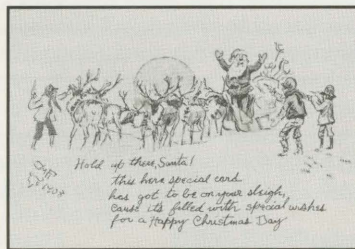 Hold up there, Santa!
this here special card
has got to be on your sleigh,
Cause its filled with special wishes
for a Happy Christmas Day